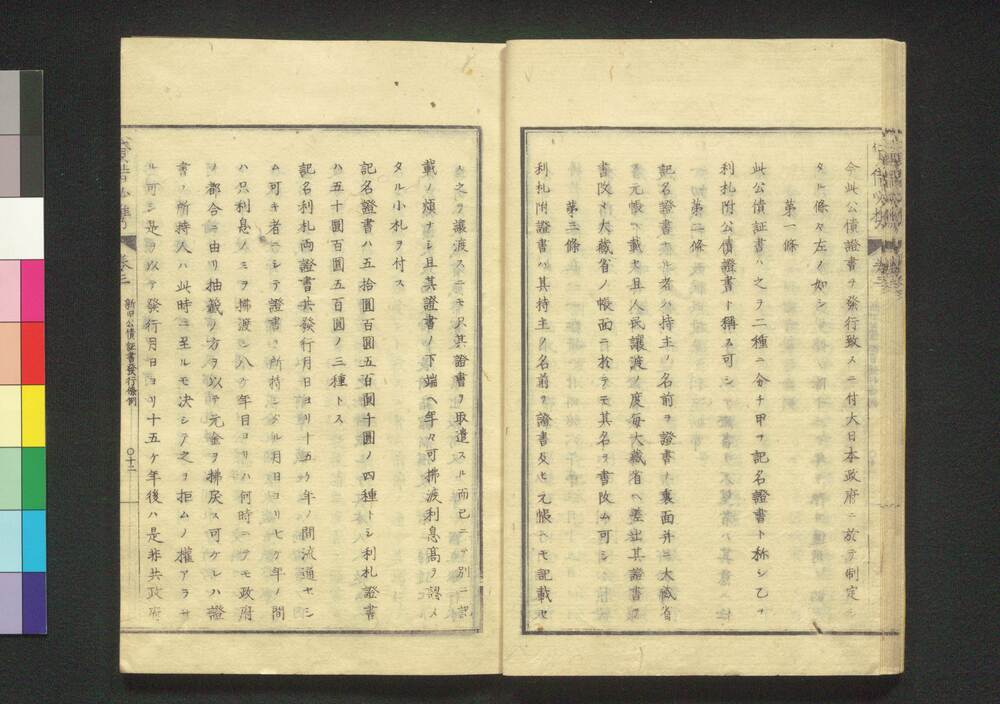 今此公債證書ヲ発行致スニ付大日本政府ニ於テ制定シ
タル條々左ノ如シ
第一條
此公債証書ハ之ヲ二種ニ分チ甲ヲ記名證書ト称シ乙ヲ
利札附公債證書ト稱ス可シ
第二條
記名證書ナル者ハ持主ノ名前ヲ證書ノ裏面并ニ大蔵省
元帳ヘ載セ且人民讓渡ノ度每大蔵省ヘ差出其證書ヲ
書改メ大蔵省ノ帳面ニ於テモ其名ヲ書改ム可シ
第三條
利札附證書ハ其持主ノ名前ヲ證書及ヒ元帳ヘモ記載セ
之ヲ讓渡スニモ只其證書ヲ取遣スル而已ニテ別ニ記
載ノ煩ナシ且其證書ノ下端ヘ年々可拂渡利息髙ヲ認メ
タル小札ヲ付ス
記名證書ハ五拾圓百圓五百圓千圓ノ四種トシ利札證書
ハ五十圓百圓五百圓ノ三種トス
記名利札両證書共發行月日ヨリ十五ヶ年ノ間流通セシ
ム可キ者ニシテ證書ノ所持シタル月日ヨリ七ケ年ノ間
ハ只利息ノミヲ拂渡シ八ケ年目ヨリハ何時ニテモ政府
ノ都合ニ由リ抽籤ノ方ヲ以テ元金ヲ拂戻ス可ケレハ證
書ノ所持人ハ此時ニ至ルモ决シテ之ヲ拒ムノ權アラサ
ル可シ是ヲ以テ發行月日ヨリ十五ケ年後ハ是非共政府
卷三
新旧公債証書發行條例
〇十二